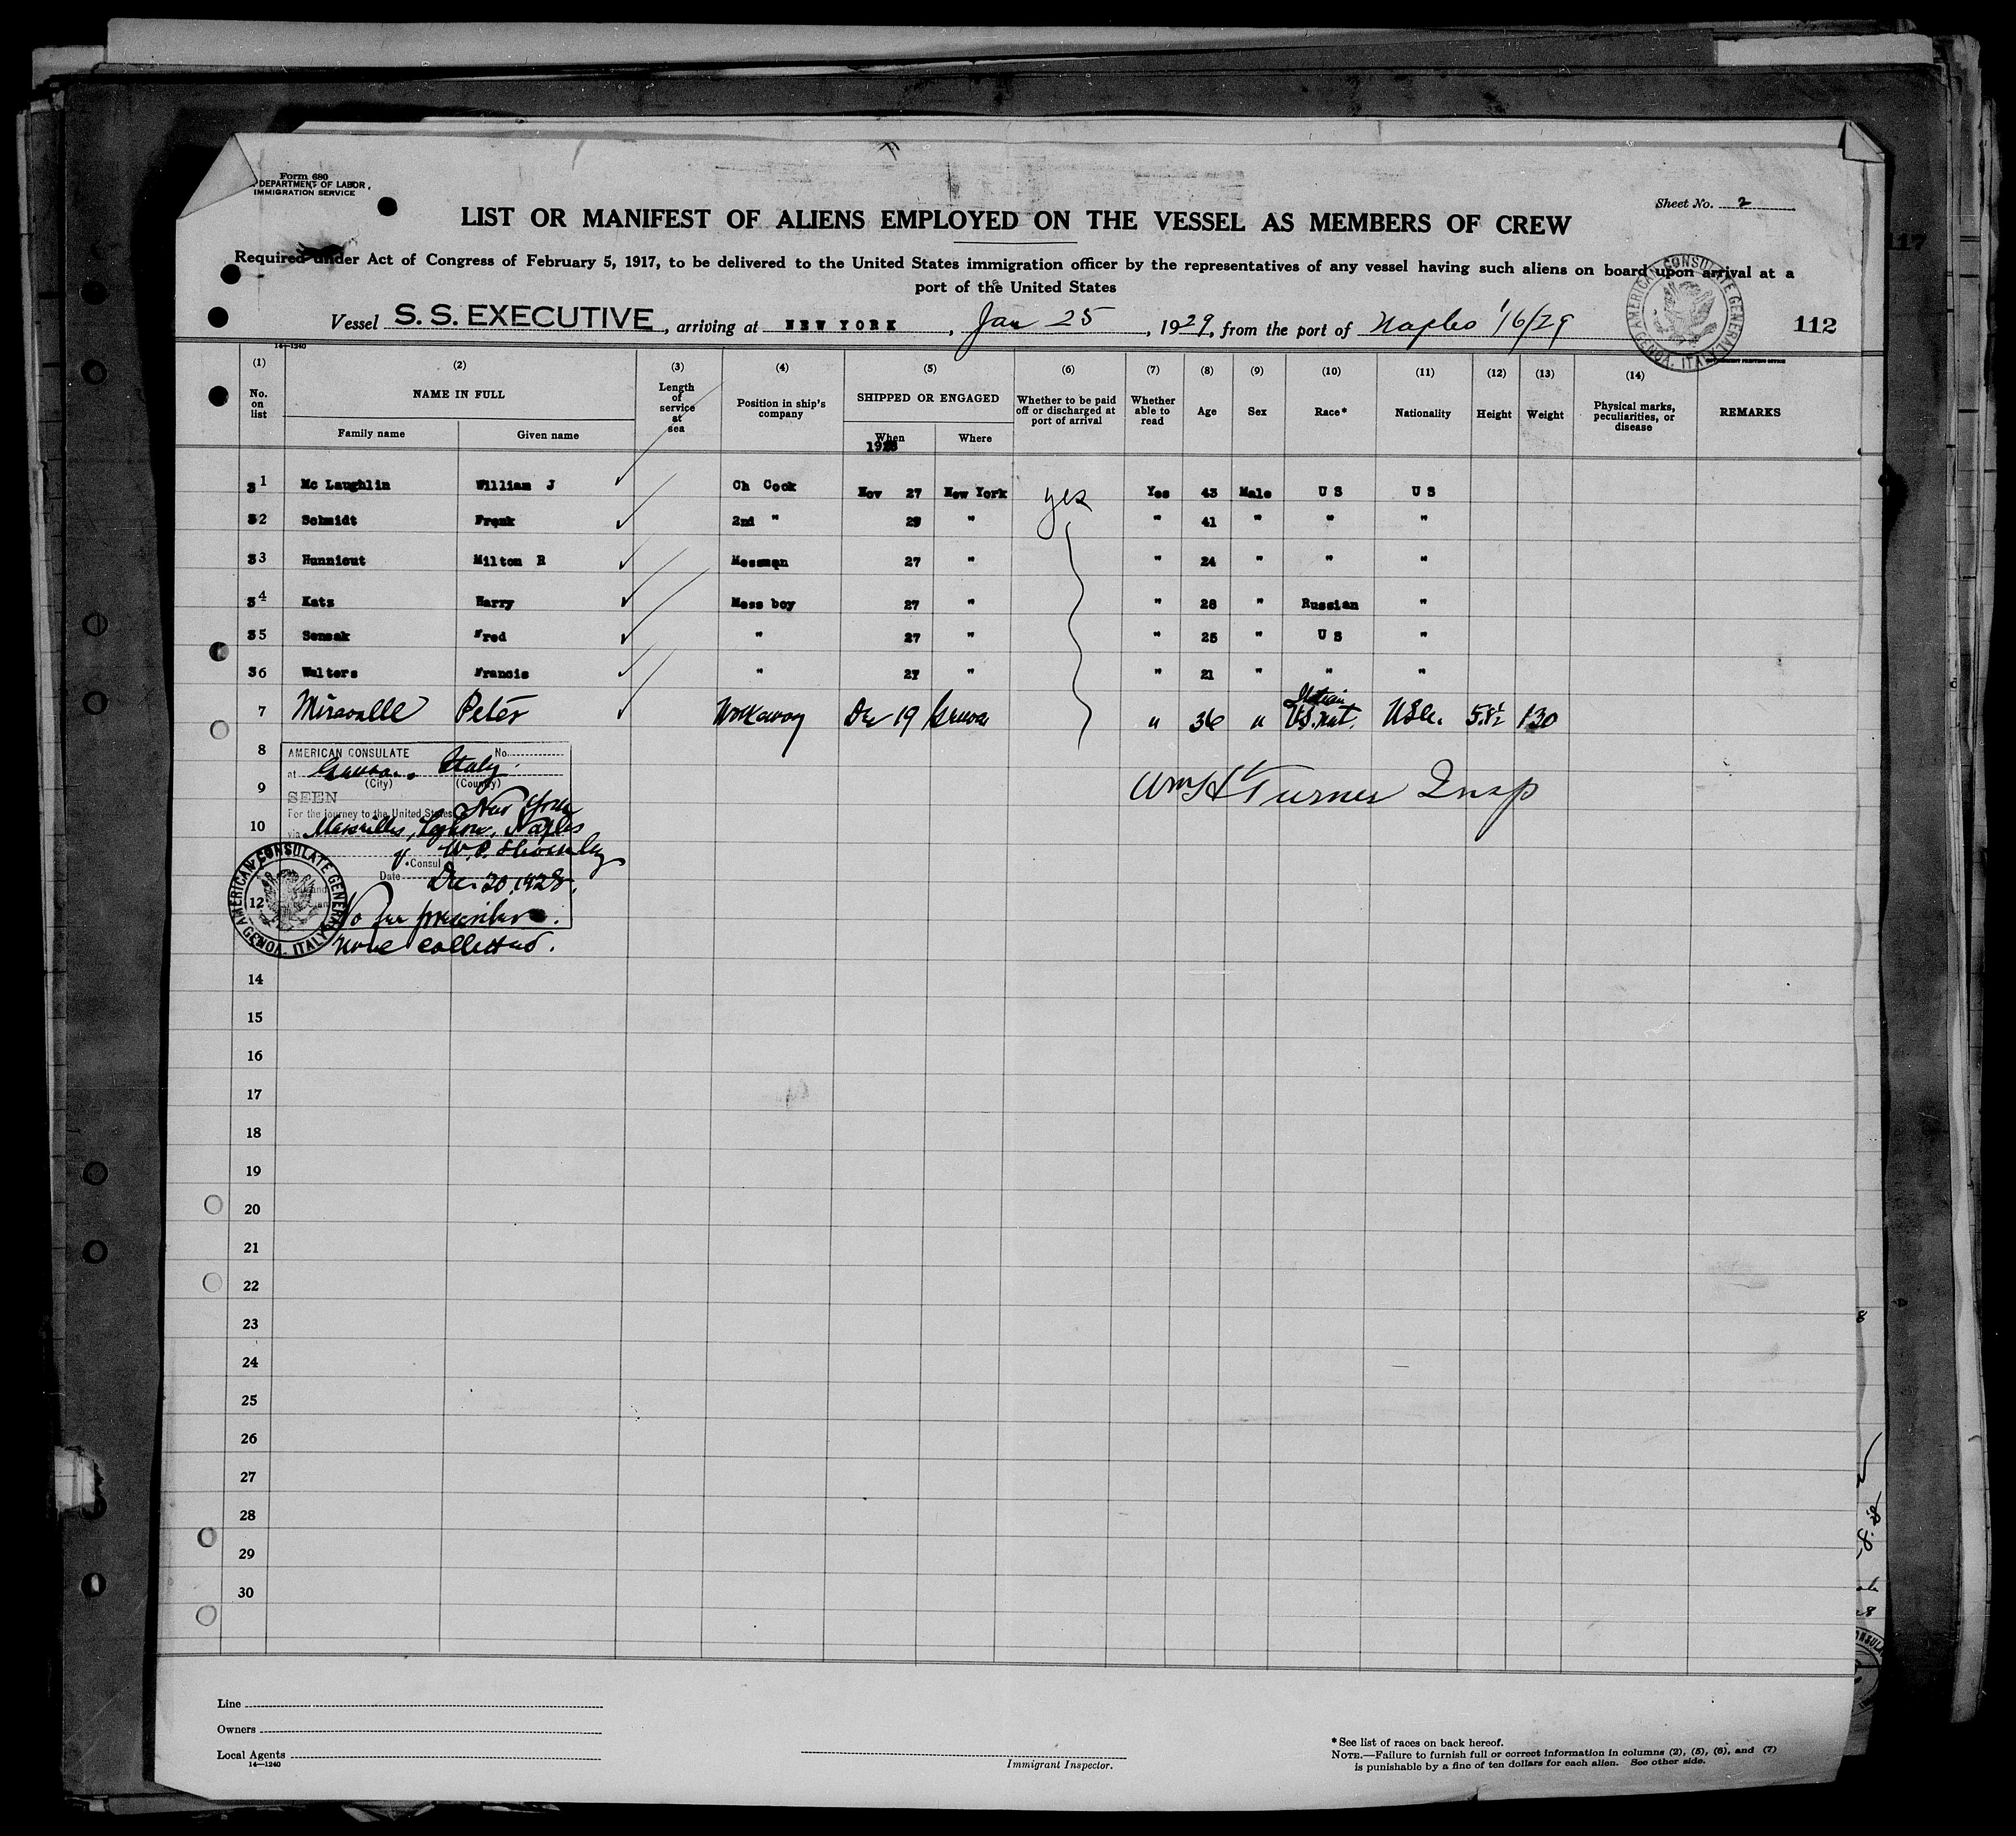 Form 680
DEPARTMENT OF LABOR
IMMIGRATION SERVICE
Sheet No. 2
LIST OR MANIFEST OF ALIENS EMPLOYED ON THE VESSEL AS MEMBERS OF CREW
Required under Act of Congress of February 5, 1917, to be delivered to the United States immigration officer by the representatives of any vessel having such aliens on board upon arrival at a
port of the United States
Vessel S. S. EXECUTIVE, arriving at NEW YORK, Jan 25, 1929, from the port of Naples 1/6/29
AMERICAN CONSULATE GENERAL GENOA, ITALY
112
117
14—1240
(1) (2) (3) (4) (5) (6) (7) (8) (9) (10) (11) (12) (13) (14)
No. on list NAME IN FULL Length of service at sea Position in ship's company SHIPPED OR ENGAGED Whether to be paid off or discharged at port of arrival Whether able to read Age Sex Race* Nationality Height Weight Physical marks, peculiarities, or disease REMARKS
Family name Given name When Where
1928
31 Mc Laughlin William J Ch Cook Nov 27 New York yes Yes 43 Male U S U S
32 Schmidt Frank 2nd " 29 " " 41 " " "
33 Hunnicut Milton R Messman 27 " " 24 " " "
34 Katz Harry Mess boy 27 " " 28 " Russian "
35 Sensak Fred " 27 " " 25 " U S "
36 Walters Francis " 27 " " 21 " " "
7 Miravalle Peter Workaway Dec 19 Genoa " 36 " Italian U.S. Nat. USA. 5.8½ 130
8 AMERICAN CONSULATE No.
at Genoa, Italy.
(City) (Country)
9 SEEN Wm H Turner Insp
For the journey to the United States New York
10 via Marseilles, Leghorn, Naples
V. Consul
Date Dec 20, 1928.
12
AMERICAN CONSULATE GENERAL GENOA, ITALY
No fee prescribed.
none collected.
14
15
16
17
18
19
20
21
22
23
24
25
26
27
28
29
30
Line
Owners
Local Agents
14—1240
Immigrant Inspector.
*See list of races on back hereof.
NOTE.—Failure to furnish full or correct information in columns (2), (5), (6), and (7)
is punishable by a fine of ten dollars for each alien. See other side.